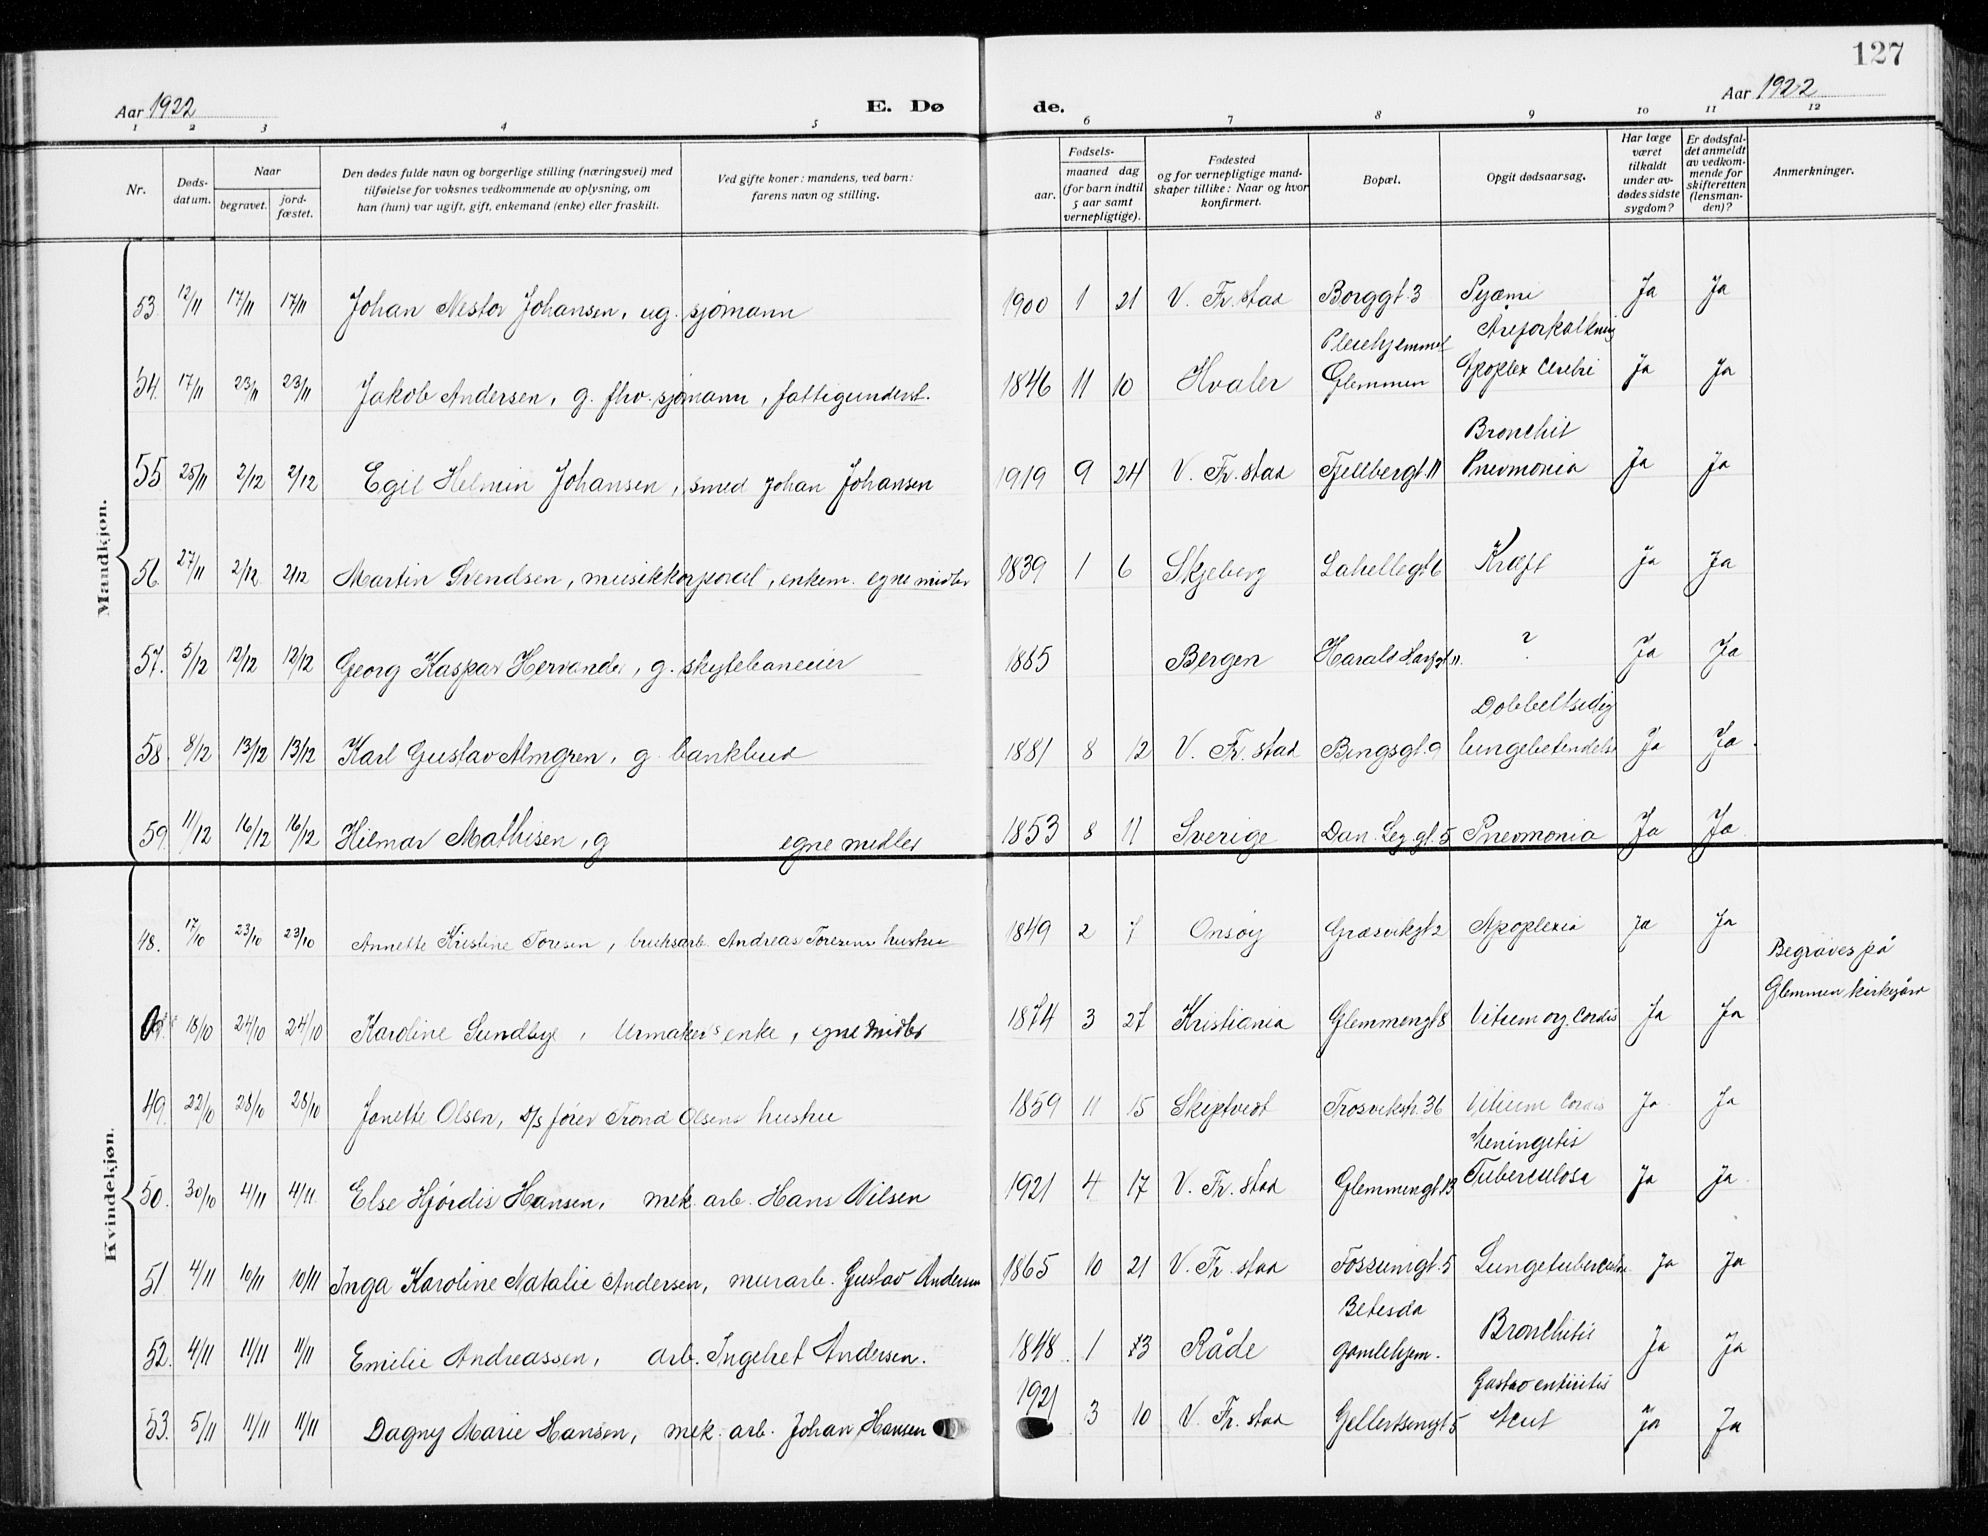 127
Aar 1922 E. Dø de. Aar 1922
1 2 3 4 5 6 7 8 9 10 11 12
Nr.
Døds-
datum.
Naar
begravet.
jord-
fæstet.
Den dødes fulde navn og borgerlige stilling (næringsvei) med
tilføielse for voksnes vedkommende av oplysning, om
han (hun) var ugift, gift, enkemand (enke) eller fraskilt.
Ved gifte koner: mandens, ved barn:
farens navn og stilling.
Fødsels-
aar.
maaned dag
(for barn indtil
5 aar samt
vernepligtige).
Fødested
og for vernepligtige mand-
skaper tillike: Naar og hvor
konfirmert.
Bopæl.
Opgit dødsaarsag.
Har læge
været
tilkaldt
under av-
dødes sidste
sygdom?
Er dødsfal-
det anmeldt
av vedkom-
mende for
skifteretten
(lensman-
den)?
Anmerkninger.
Mandkjøn.
53. 12/11 17/11 17/11 Johan Nestor Johansen, ug. sjømann 1900 1 21 V. Fr. stad Borggt. 3 Pyæmi Ja Ja
Pleiehjemmet Åreforkalkning
54. 17/11 23/11 23/11 Jakob Andersen, g. fhv. sjømann, fattigunderst. 1846 11 10 Hvaler Glemmen Apoplex Cerebri Ja Ja
Bronchit
55 25/11 2/12 2/12 Egil Helmin Johansen, smed Johan Johansen 1919 9 24 V. Fr. stad Fjellbergt. 11 Pnevmonia Ja Ja
56. 27/11 2/12 2/12 Martin Svendsen, musikkorporal, enkem. egne midler 1839 1 6 Skjeberg Lahellegt. 6 Kræft Ja Ja
57. 5/12 12/12 12/12 Georg Kaspar, g. skytebaneeier 1865 Bergen Harald 11. ? Ja Ja
Dobbeltsidig
58. 8/12 13/12 13/12 Karl Gustav Almgren, g. bankbud 1881 8 12 V. Fr. stad Bingsgt. 9 lungebetendelse Ja Ja
59. 11/12 16/12 16/12 Hilmar Mathisen, g egne midler 1853 8 11 Sverige Dan. Leg. gt. 5 Pnevmonia Ja Ja
Kvindekjøn.
48. 17/10 23/10 23/10 Annette Kristine Toresen, bruksarb. Andreas Toresens hustru 1849 2 7 Onsøy Græsvikgt 2 Apoplexia Ja Ja
Begraves på
Glemmen kirkegård
18/10 24/10 24/10 Karoline Sundbye, Urmaker's enke, egne midler 1874 3 27 Kristiania Glemmengt 8 Vitium org. Cordis Ja Ja
49. 22/10 28/10 28/10 Janette Olsen, D/s fører Trond Olsens hustru 1859 11 15 Skiptvedt Trosvikstr. 36 Vitium Cordis Ja Ja
Meningitis
50. 30/10 4/11 4/11. Else Hjørdis Hansen, mek. arb. Hans Nilsen 1921 4 17 V. Fr. stad Glemmengt. 13 Tuberculosa Ja Ja
51 4/11 10/11 10/11 Inga Karoline Natalie Andersen, murarb. Gustav Andersen 1865 10 21 V. Fr. stad Fossumgt. 5 Lungetuberculose Ja Ja
Betesda
52. 4/11 11/11 11/11 Emilie Andreassen, arb. Ingebret Andersen. 1848 1 23 Råde gamlehjem. Bronchitis Ja Ja
1921 Gastro enteritis
53. 5/11 11/11 11/11 Dagny Marie Hansen, mek. arb. Johan Hansen 3 10 V. Fr. stad Gellertsengt 5 Acut Ja Ja